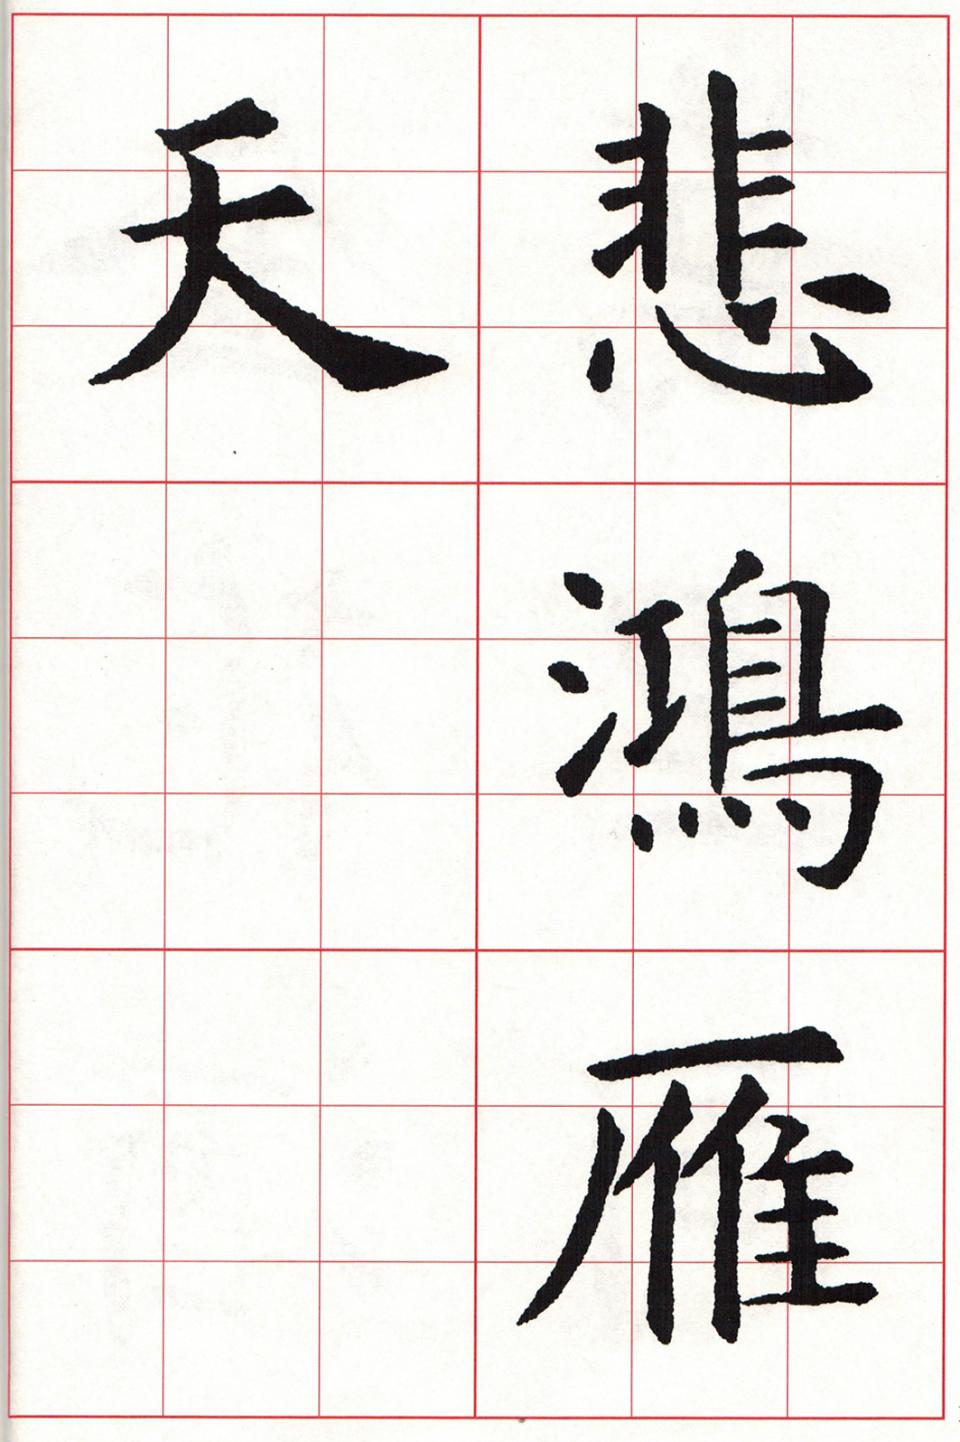 悲鴻雁
天